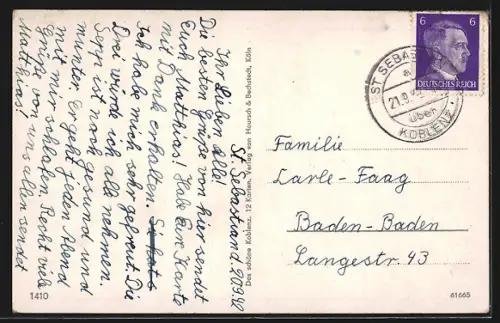 St. Sebastian d. 20.9.42
Ihr Lieben alle!
Die besten Grüße von hier sendt
Euch Matthias! Habe Eure Karte
mit Dank erhalten.
Ich habe mich sehr gefreut. Die
Drei würde ich all nehmen.
Sepp ist noch gesund und
munter. Er geht jeden Abend
mit mir schlafen. Recht viele
Grüße von uns allen sendet
Matthias!
1410
Das schöne Koblenz. 12 Karten. Verlag von Hoursch & Bechstedt, Köln
6 6
DEUTSCHES REICH
ST. SEBAST
21.9.
über
KOBLENZ
Familie
Larle-Faag
Baden-Baden
Langestr. 43
61665